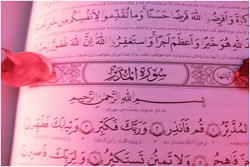 وَأَقْرِضُوا اللَّهَ قَرْضًا حَسَنًا وَمَا تُقَدِّمُوا لِأَنفُسِكُم
هُوَ خَيْرًا وَأَعْظَمَ أَجْرًا وَاسْتَغْفِرُوا اللَّهَ إِنَّ اللَّهَ غَفُورٌ
سُورَةُ الْمُدَّثِّرِ
بِسْمِ اللَّهِ الرَّحْمَٰنِ الرَّحِيمِ
الْمُدَّثِّرُ ۝ قُمْ فَأَنذِرْ ۝ وَرَبَّكَ فَكَبِّرْ ۝ وَثِيَابَكَ فَطَهِّرْ
وَلَا تَمْنُن تَسْتَكْثِرُ